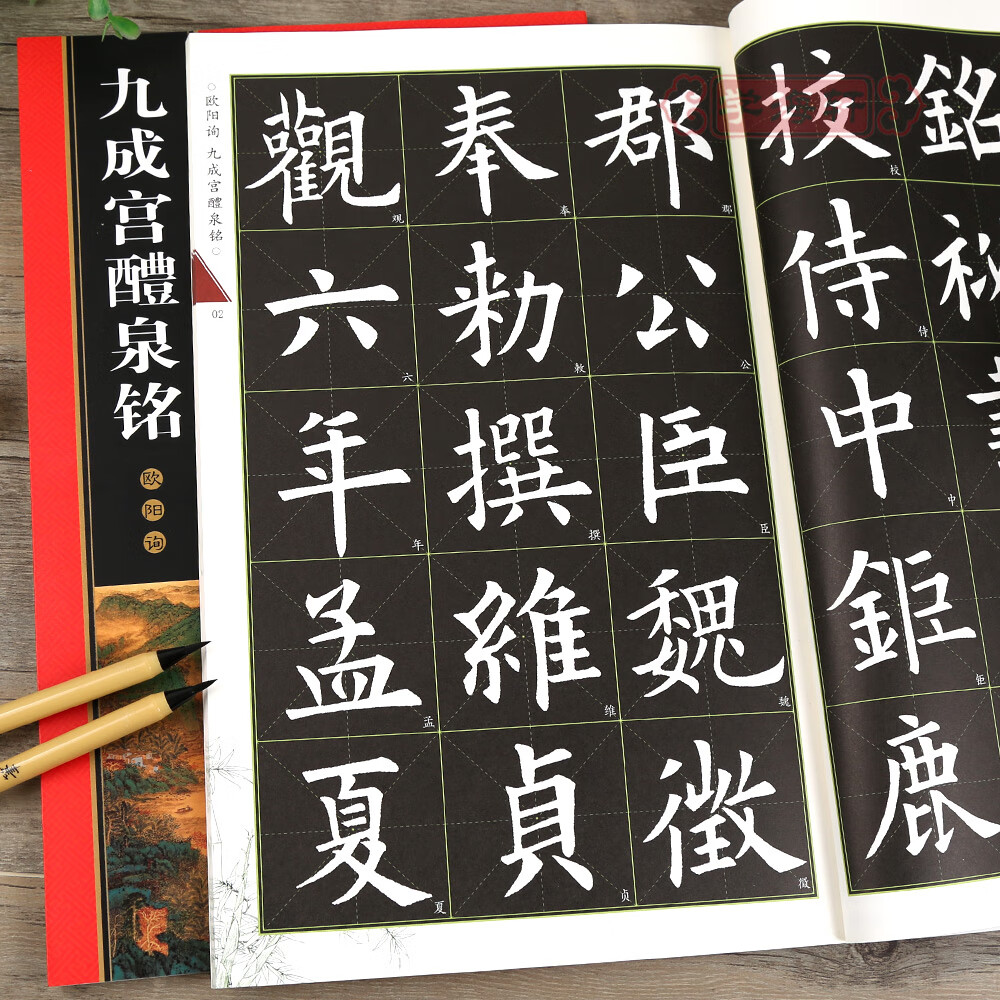 九成宫醴泉铭
欧阳询
欧阳询 九成宫醴泉铭
02
銘
挍侍中鉅鹿
校侍中钜
郡公臣魏徵
郡公臣魏徵
奉勑撰維貞
奉敕撰维贞
觀六年孟夏
观六年孟夏